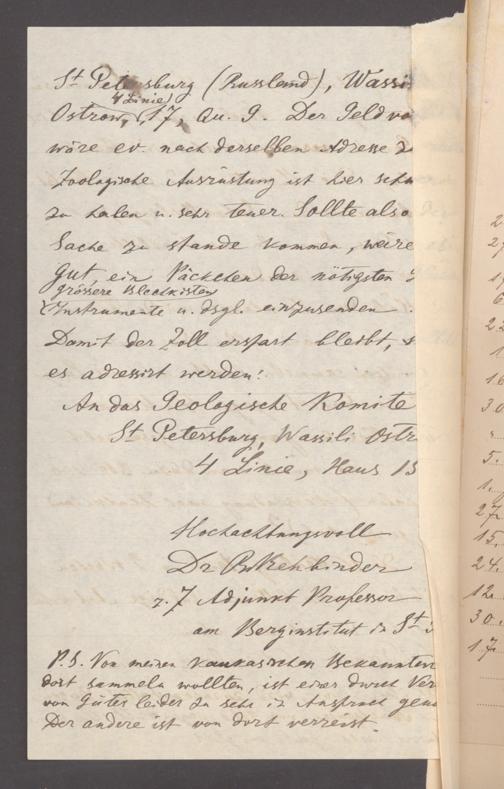 St Petersburg (Russland), Wassi
4 Linie
Ostrow, 17, Qu. 9. Der Geldvo
wäre ev. nach derselben Adresse z
Zoologische Ausrüstung ist hier schw
zu holen u. sehr teuer. Sollte also
Sache zu stande kommen, wäre
gut, ein Päckchen der nötigsten
grössere Blechkisten
Instrumente u. dsgl. einzusenden
Damit der Zoll erspart bleibt, s
es adressirt werden:
An das Geologische Komite
St Petersburg, Wassili Ostr
4 Linie, Haus 15
Hochachtungsvoll
Dr B. Rehbinder
z. Z Adjunkt Professor
am Berginstitut in St
P.S. Von meinen kaukasischen Bekannten
dort sammeln wollten, ist einer durch Ver
von Güter leider zu sehr in Anspruch gen
Der andere ist von dort verreist.
2
27
1
6
22
1
16
30
5.
1.
27.
15.
24.
12
30.
17.